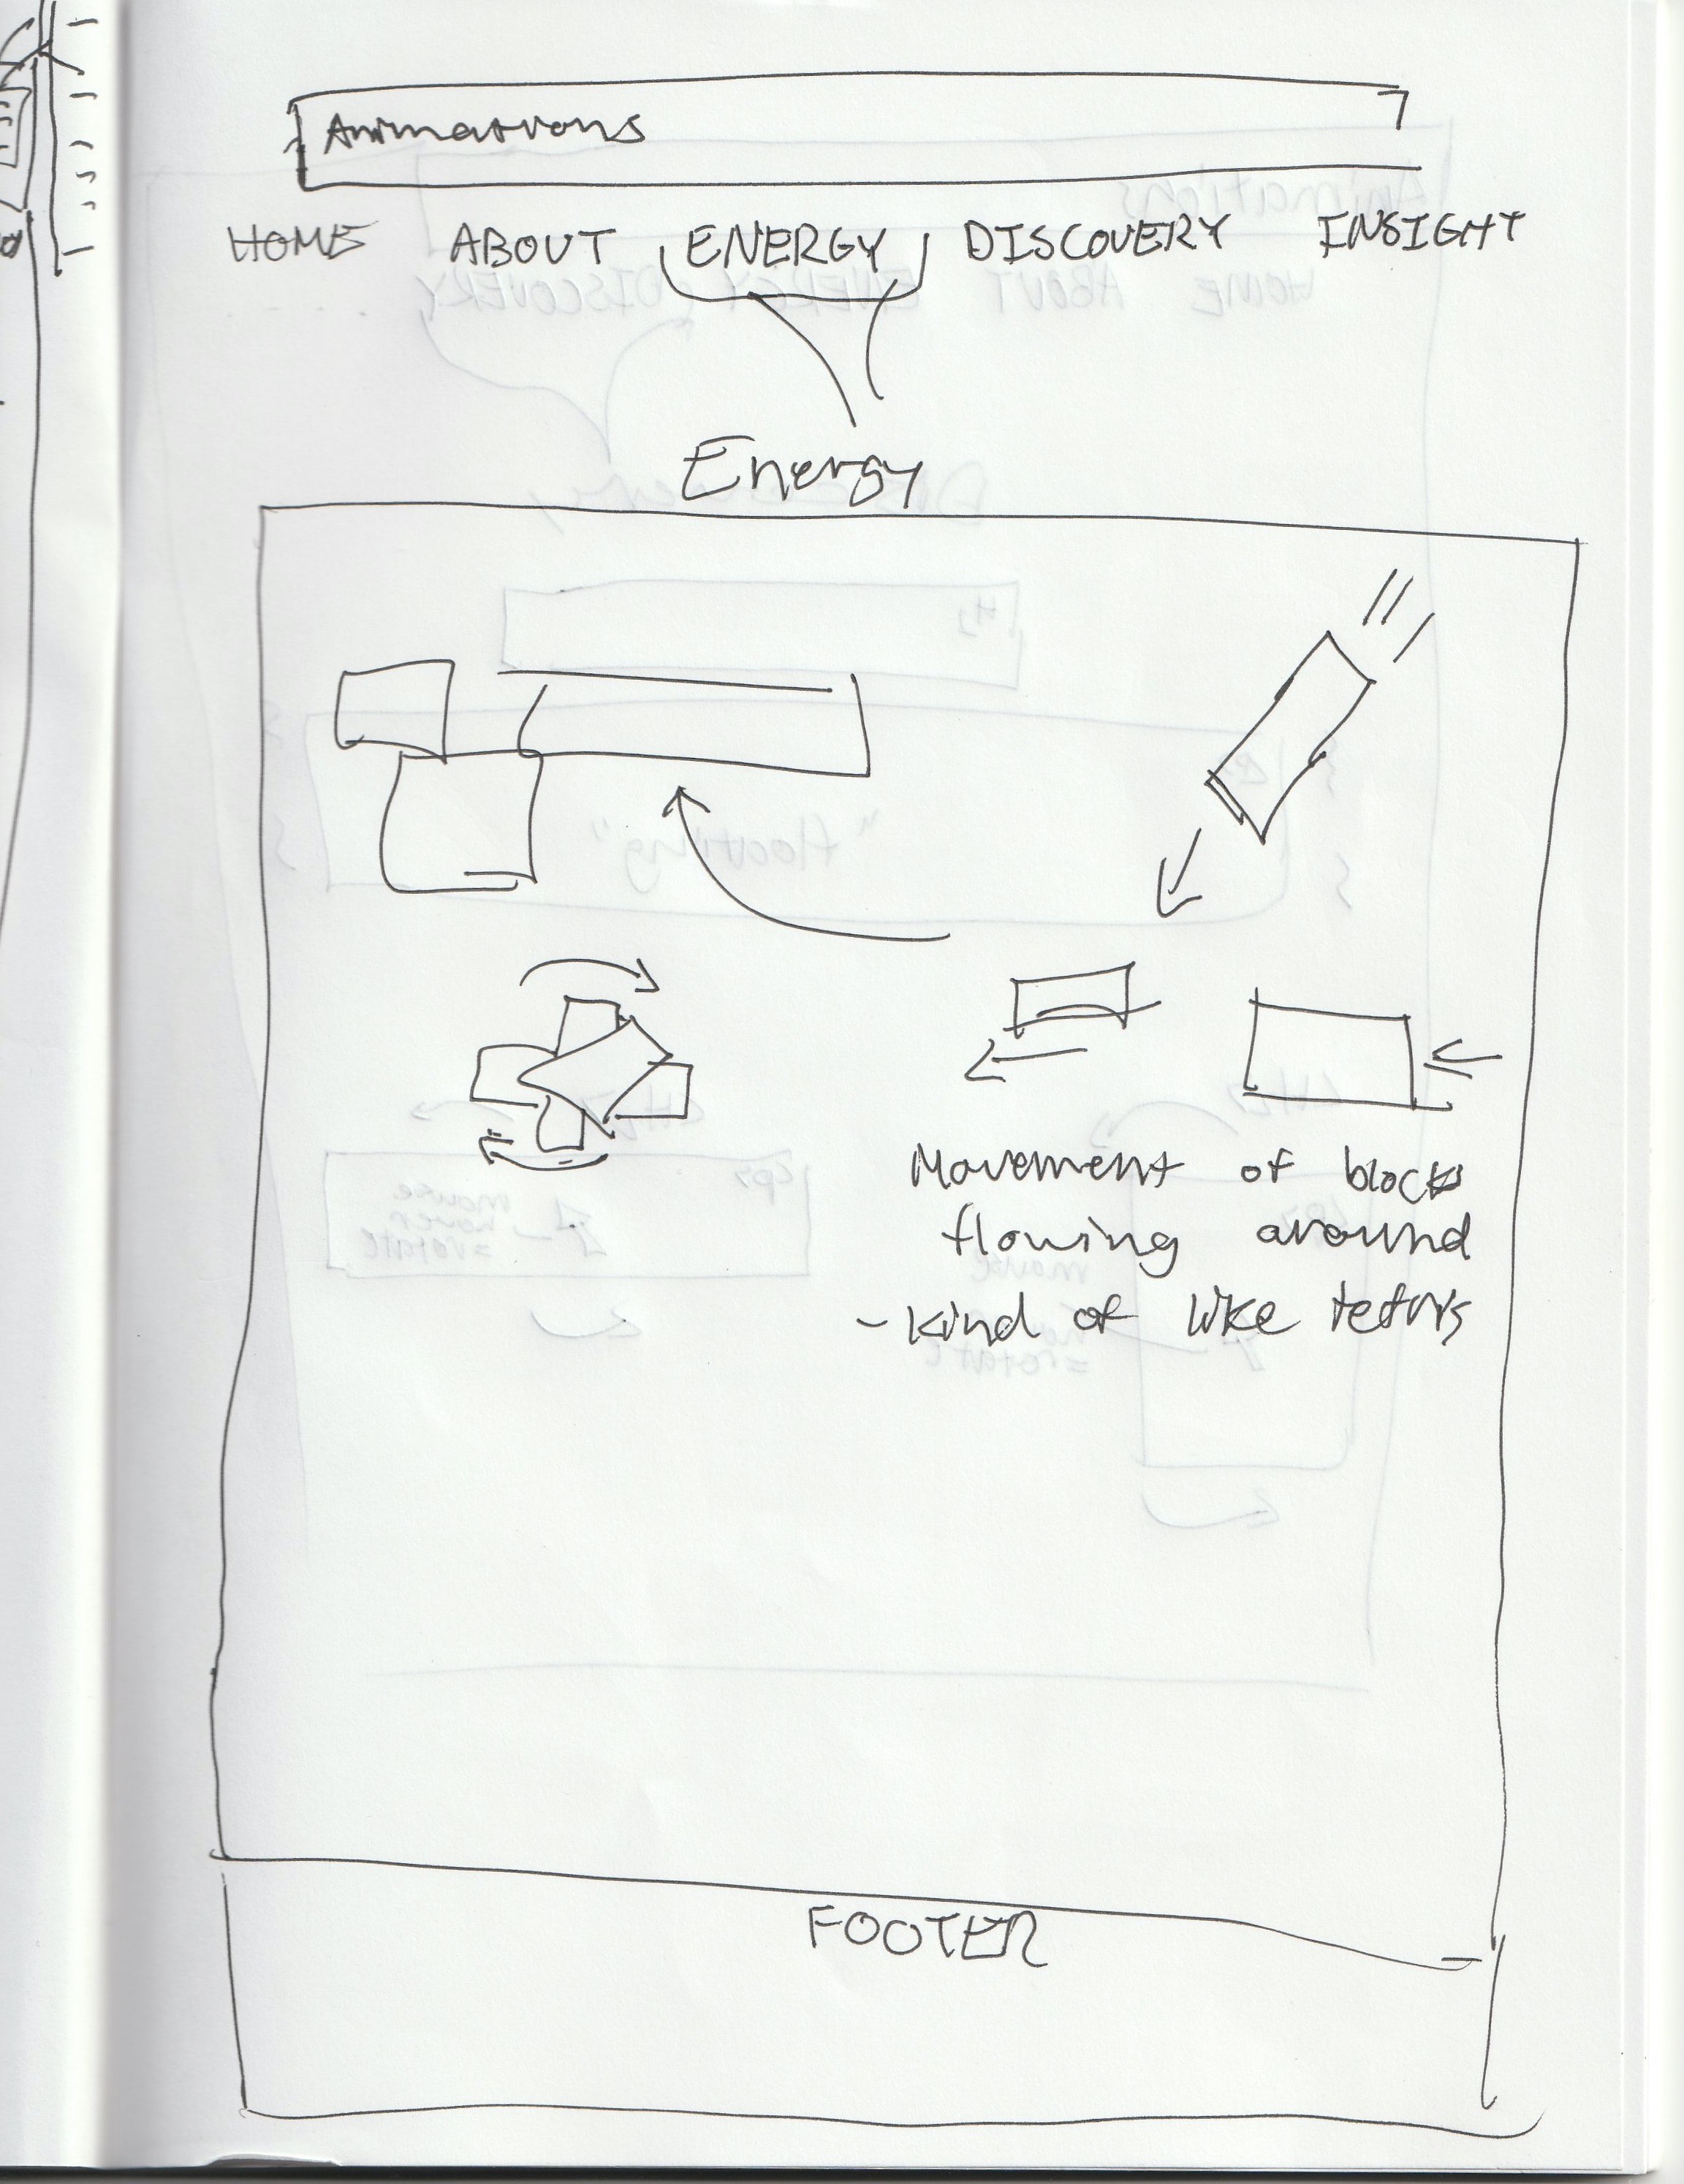 Animations
HOME ABOUT ENERGY DISCOVERY INSIGHT
Energy
Movement of blocks
flowing around
- kind of like tetris
FOOTER